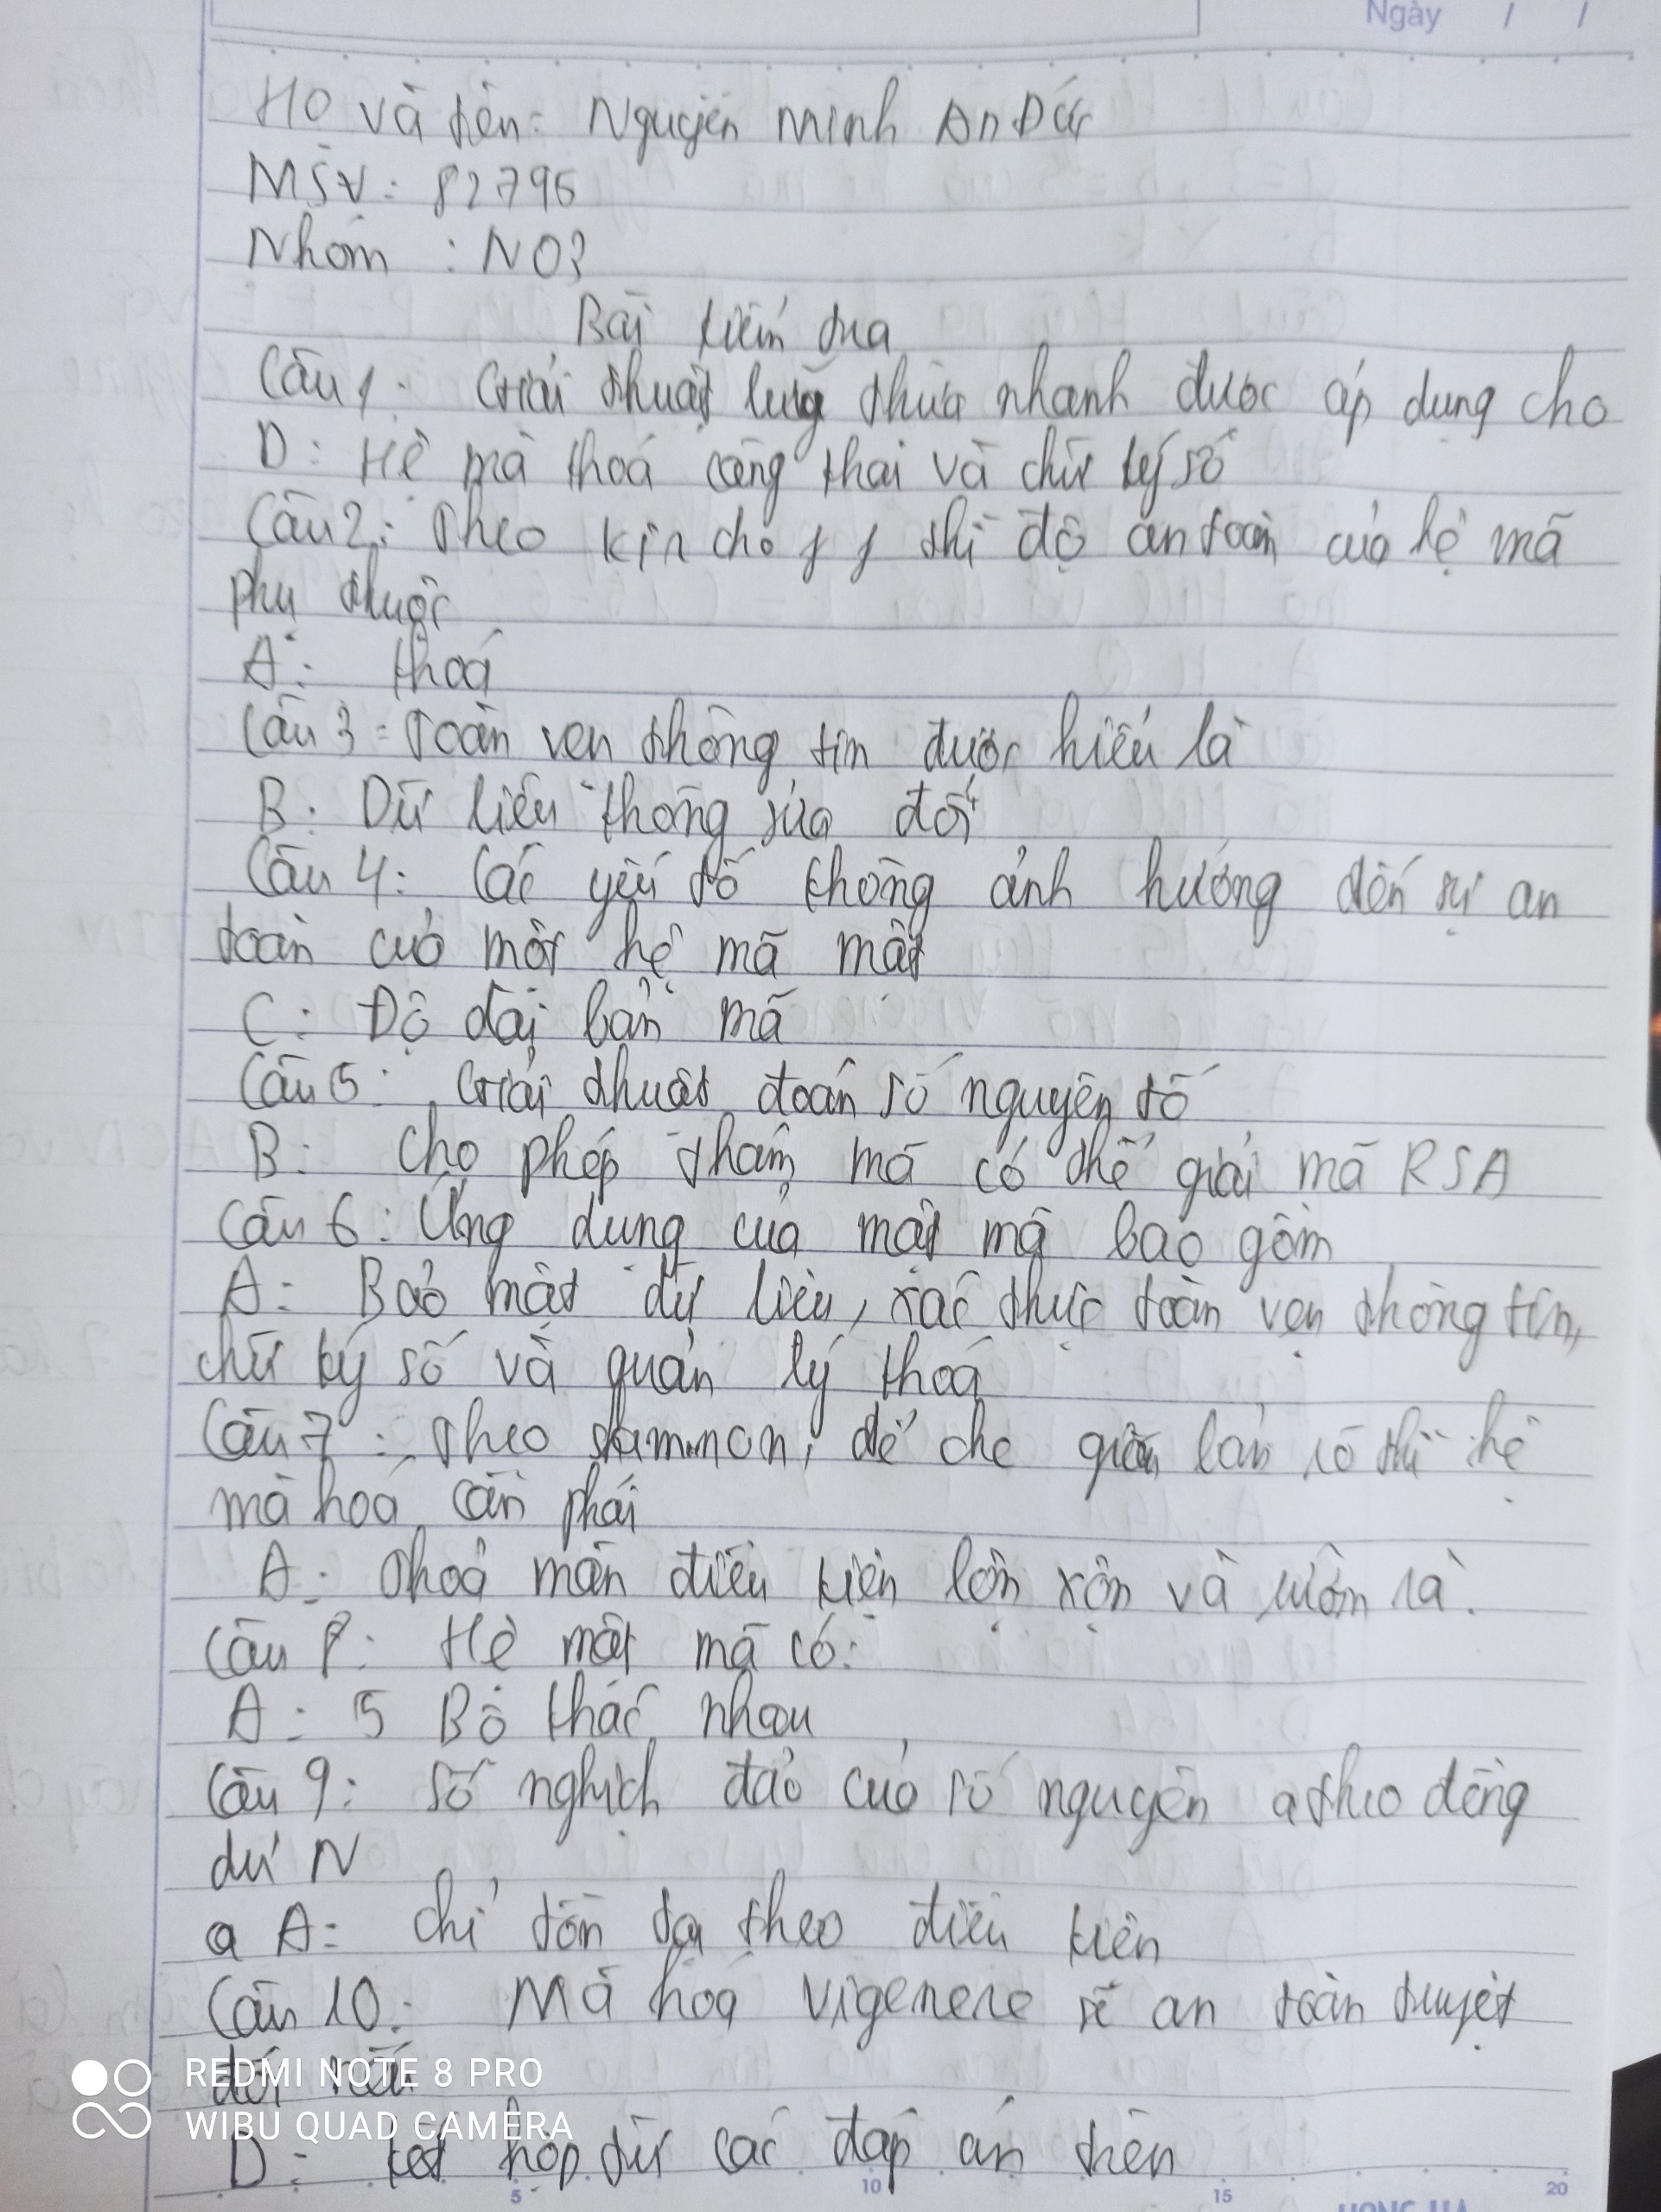 Ngày / /
Họ và tên: Nguyễn Minh An Đức
MSV: 82796
Nhóm : N03
Bài kiểm tra
Câu 1. Giải thuật luỹ thừa nhanh được áp dụng cho
D: Hệ mã khoá công khai và chữ ký số
Câu 2: Theo kin cho thì độ an toàn của hệ mã
phụ thuộc
A: Khoá
Câu 3: Toàn vẹn thông tin được hiểu là
B: Dữ liệu không sửa đổi
Câu 4: Các yếu tố không ảnh hưởng đến sự an
toàn của một hệ mã mật
C: Độ dài bản mã
Câu 5: Giải thuật đoán số nguyên tố
B: Cho phép thám mã có thể giải mã RSA
Câu 6: Ứng dụng của mật mã bao gồm
A: Bảo mật dữ liệu, xác thực toàn vẹn thông tin,
chữ ký số và quản lý khoá
Câu 7: Theo shammon, để che giấu bản rõ thì hệ
mã hoá cần phải
A: Thoả mãn điều kiện lộn xộn và rườm rà.
Câu 8: Hệ mật mã có:
A: 5 Bộ khác nhau
Câu 9: Số nghịch đảo của số nguyên a theo đồng
dư N
a A: chỉ tồn tại theo điều kiện
Câu 10: Mã hoá vigenere sẽ an toàn tuyệt
đối nếu
D: kết hợp từ các đáp án trên
REDMI NOTE 8 PRO
WIBU QUAD CAMERA
5 10 15 20